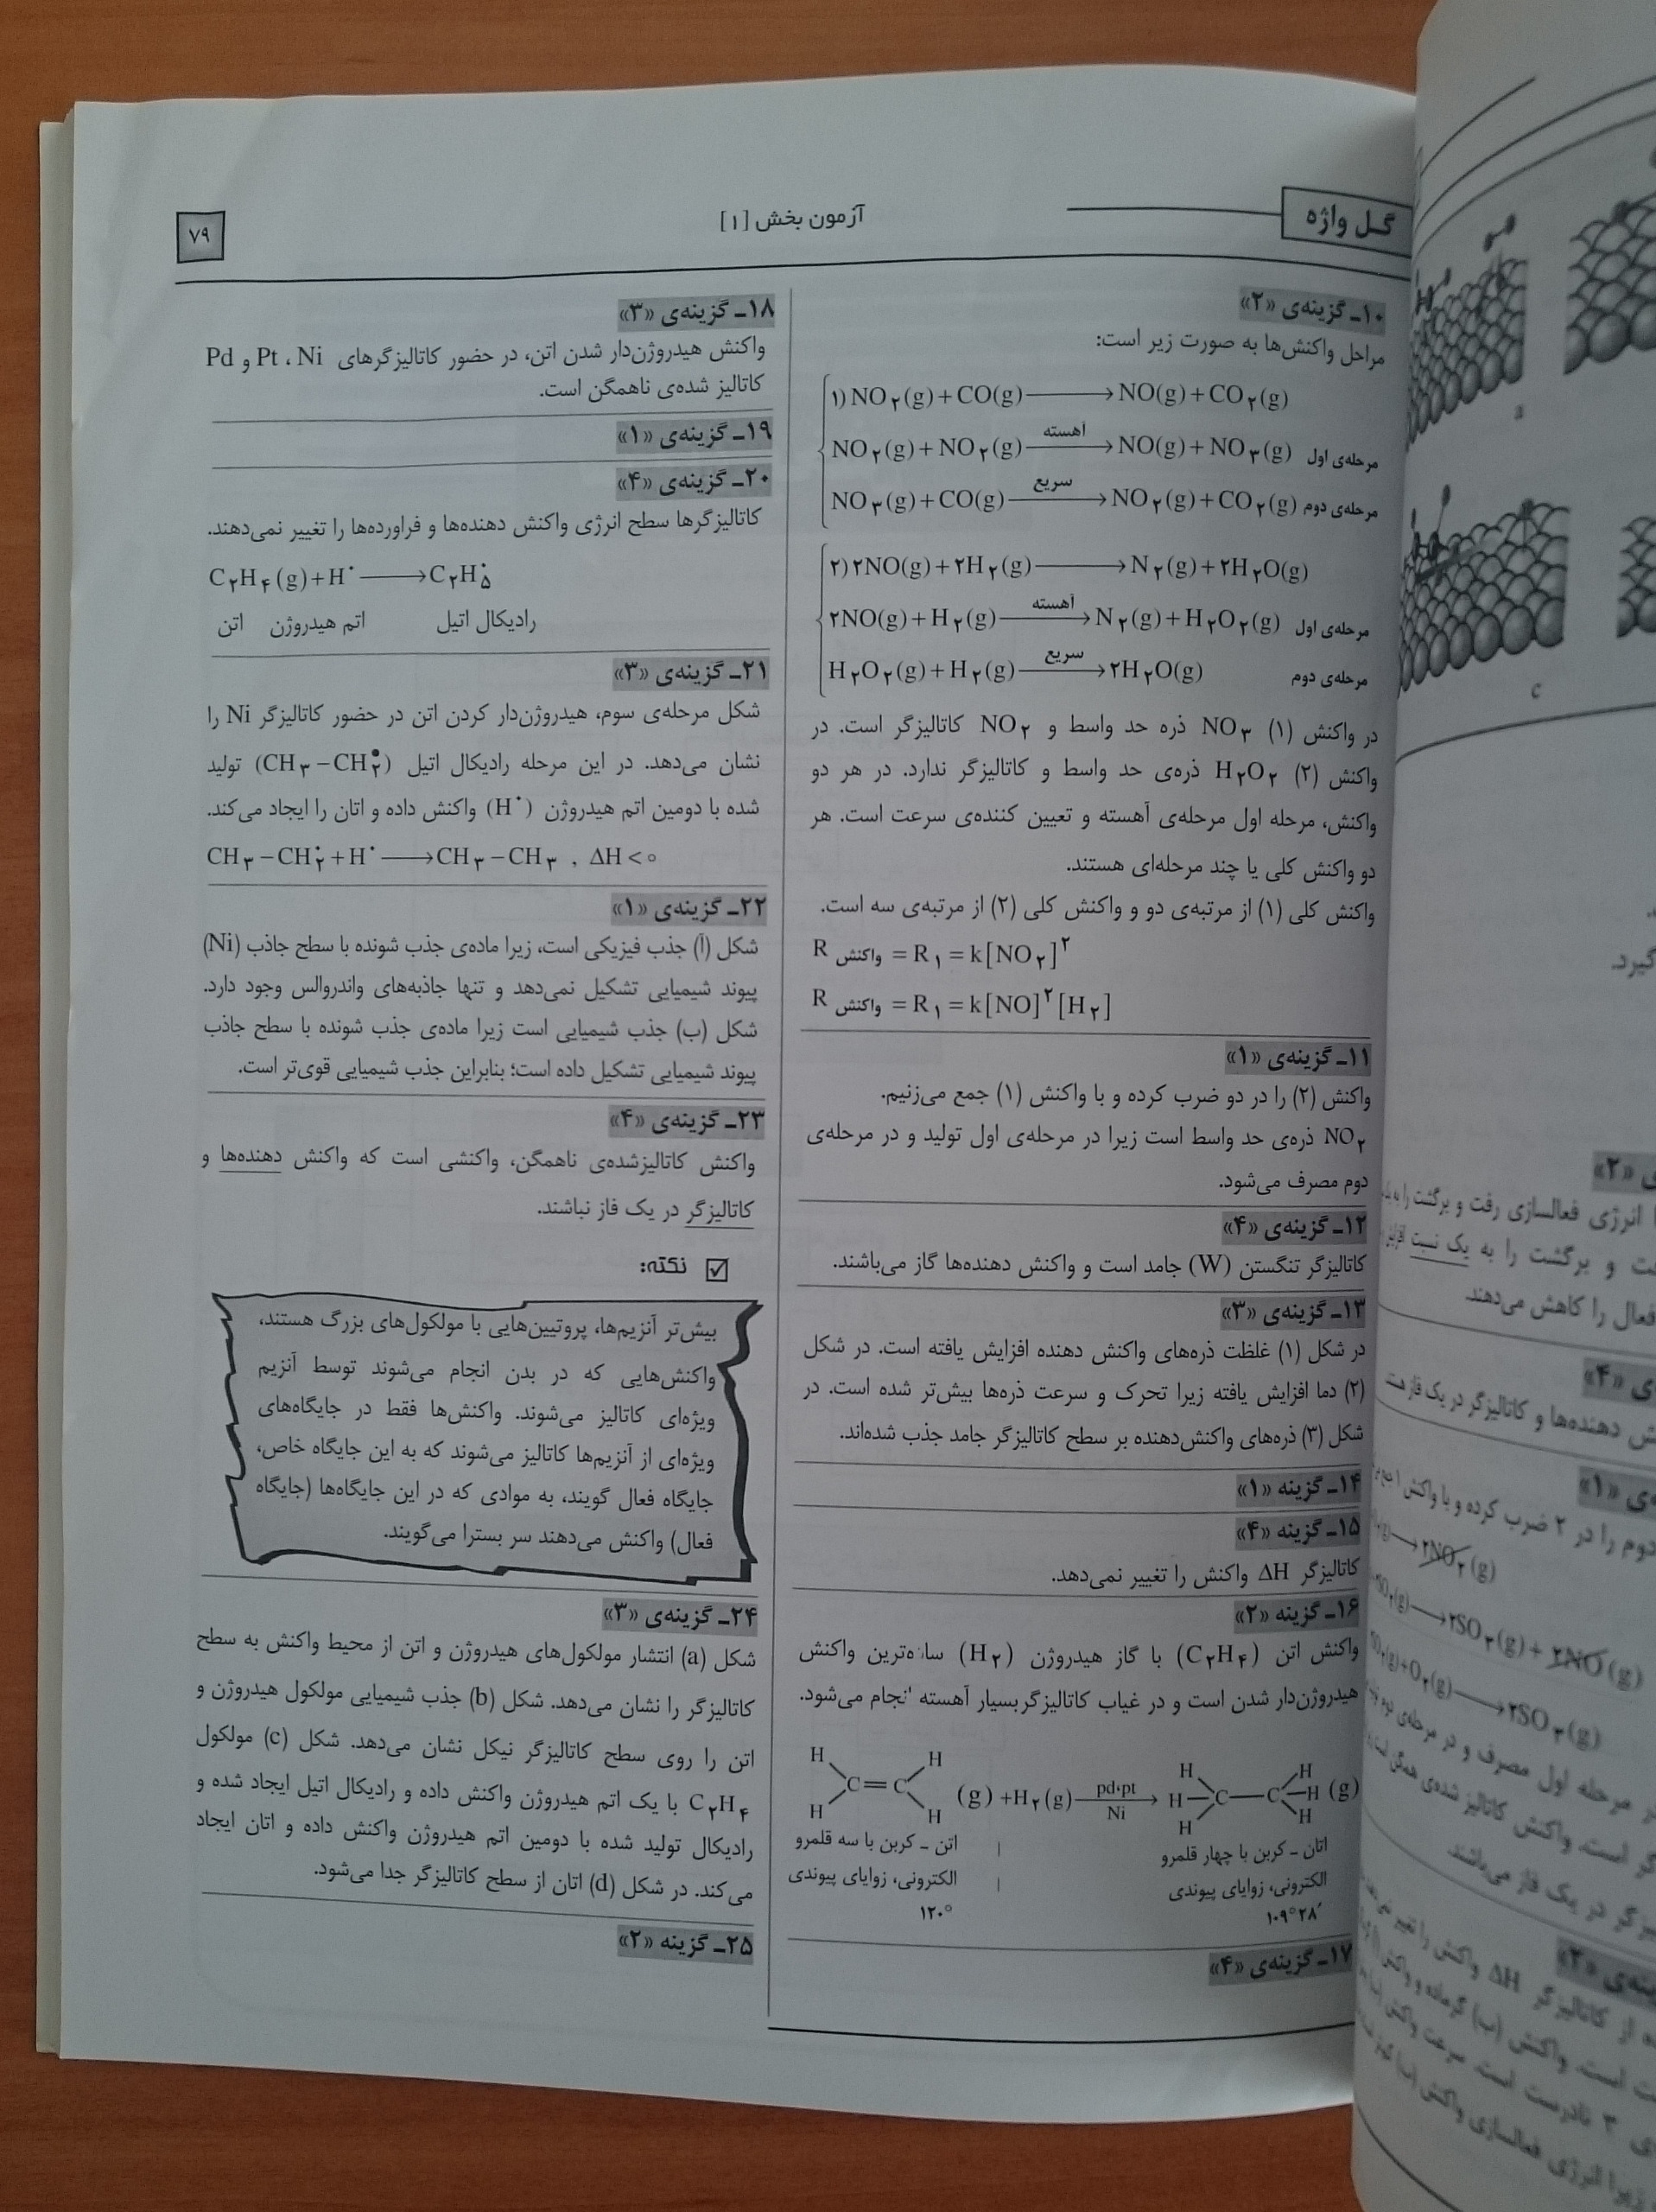 گل واژه
آزمون بخش [۱]
۷۹
۱۰ـ گزینه‌ی «۲»
مراحل واکنش‌ها به صورت زیر است:
۱) NO۲(g)+CO(g) ⟶ NO(g)+CO۲(g)
NO۲(g)+NO۲(g) ⟶ آهسته NO(g)+NO۳(g) مرحله‌ی اول
NO۳(g)+CO(g) ⟶ سریع NO۲(g)+CO۲(g) مرحله‌ی دوم
۲) ۲NO(g)+۲H۲(g) ⟶ N۲(g)+۲H۲O(g)
۲NO(g)+H۲(g) ⟶ آهسته N۲(g)+H۲O۲(g) مرحله‌ی اول
H۲O۲(g)+H۲(g) ⟶ سریع ۲H۲O(g) مرحله‌ی دوم
در واکنش (۱) NO۳ ذره حد واسط و NO۲ کاتالیزگر است. در
واکنش (۲) H۲O۲ ذره‌ی حد واسط و کاتالیزگر ندارد. در هر دو
واکنش، مرحله اول مرحله‌ی آهسته و تعیین کننده‌ی سرعت است. هر
دو واکنش کلی یا چند مرحله‌ای هستند.
واکنش کلی (۱) از مرتبه‌ی دو و واکنش کلی (۲) از مرتبه‌ی سه است.
R واکنش = R۱ = k[NO۲]۲
R واکنش = R۱ = k[NO]۲[H۲]
۱۱ـ گزینه‌ی «۱»
واکنش (۲) را در دو ضرب کرده و با واکنش (۱) جمع می‌زنیم.
NO۲ ذره‌ی حد واسط است زیرا در مرحله‌ی اول تولید و در مرحله‌ی
دوم مصرف می‌شود.
۱۲ـ گزینه‌ی «۴»
کاتالیزگر تنگستن (W) جامد است و واکنش دهنده‌ها گاز می‌باشند.
۱۳ـ گزینه‌ی «۳»
در شکل (۱) غلظت ذره‌های واکنش دهنده افزایش یافته است. در شکل
(۲) دما افزایش یافته زیرا تحرک و سرعت ذره‌ها بیش‌تر شده است. در
شکل (۳) ذره‌های واکنش‌دهنده بر سطح کاتالیزگر جامد جذب شده‌اند.
۱۴ـ گزینه «۱»
۱۵ـ گزینه «۴»
کاتالیزگر ΔH واکنش را تغییر نمی‌دهد.
۱۶ـ گزینه «۲»
واکنش اتن (C۲H۴) با گاز هیدروژن (H۲) ساده‌ترین واکنش
هیدروژن‌دار شدن است و در غیاب کاتالیزگر بسیار آهسته انجام می‌شود.
H H H H
C=C (g) +H۲(g) ⟶ pd،pt Ni H—C—C—H (g)
H H H H
اتن ـ کربن با سه قلمرو
الکترونی، زوایای پیوندی
۱۲۰°
اتان ـ کربن با چهار قلمرو
الکترونی، زوایای پیوندی
۱۰۹°۲۸′
۱۷ـ گزینه‌ی «۴»
۱۸ـ گزینه‌ی «۳»
واکنش هیدروژن‌دار شدن اتن، در حضور کاتالیزگرهای Pt ، Ni و Pd
کاتالیز شده‌ی ناهمگن است.
۱۹ـ گزینه‌ی «۱»
۲۰ـ گزینه‌ی «۴»
کاتالیزگرها سطح انرژی واکنش دهنده‌ها و فراورده‌ها را تغییر نمی‌دهند.
C۲H۴(g)+H• ⟶ C۲H۵•
اتن اتم هیدروژن رادیکال اتیل
۲۱ـ گزینه‌ی «۳»
شکل مرحله‌ی سوم، هیدروژن‌دار کردن اتن در حضور کاتالیزگر Ni را
نشان می‌دهد. در این مرحله رادیکال اتیل (CH۳−CH۲•) تولید
شده با دومین اتم هیدروژن (H•) واکنش داده و اتان را ایجاد می‌کند.
CH۳−CH۲•+H• ⟶ CH۳−CH۳ , ΔH<۰
۲۲ـ گزینه‌ی «۱»
شکل (آ) جذب فیزیکی است، زیرا ماده‌ی جذب شونده با سطح جاذب (Ni)
پیوند شیمیایی تشکیل نمی‌دهد و تنها جاذبه‌های واندروالس وجود دارد.
شکل (ب) جذب شیمیایی است زیرا ماده‌ی جذب شونده با سطح جاذب
پیوند شیمیایی تشکیل داده است؛ بنابراین جذب شیمیایی قوی‌تر است.
۲۳ـ گزینه‌ی «۴»
واکنش کاتالیزشده‌ی ناهمگن، واکنشی است که واکنش دهنده‌ها و
کاتالیزگر در یک فاز نباشند.
نکته:
بیش‌تر آنزیم‌ها، پروتیین‌هایی با مولکول‌های بزرگ هستند،
واکنش‌هایی که در بدن انجام می‌شوند توسط آنزیم
ویژه‌ای کاتالیز می‌شوند. واکنش‌ها فقط در جایگاه‌های
ویژه‌ای از آنزیم‌ها کاتالیز می‌شوند که به این جایگاه خاص،
جایگاه فعال گویند، به موادی که در این جایگاه‌ها (جایگاه
فعال) واکنش می‌دهند سر بسترا می‌گویند.
۲۴ـ گزینه‌ی «۳»
شکل (a) انتشار مولکول‌های هیدروژن و اتن از محیط واکنش به سطح
کاتالیزگر را نشان می‌دهد. شکل (b) جذب شیمیایی مولکول هیدروژن و
اتن را روی سطح کاتالیزگر نیکل نشان می‌دهد. شکل (c) مولکول
C۲H۴ با یک اتم هیدروژن واکنش داده و رادیکال اتیل ایجاد شده و
رادیکال تولید شده با دومین اتم هیدروژن واکنش داده و اتان ایجاد
می‌کند. در شکل (d) اتان از سطح کاتالیزگر جدا می‌شود.
۲۵ـ گزینه «۲»
a
c
گیرد.
ی «۲»
انرژی فعالسازی رفت و برگشت را به
و برگشت را به یک نسبت
فعال را کاهش می‌دهند.
ی «۴»
دهنده‌ها و کاتالیزگر در یک فاز
ی «۱»
دوم را در ۲ ضرب کرده و با واکنش
⟶۲NO۲(g)
⟶۲SO۳(g)+۲NO(g)
+O۲(g)⟶۲SO۳(g)
مرحله اول مصرف و در مرحله‌ی دوم
است. واکنش کاتالیز شده‌ی همگن است
در یک فاز می‌باشند.
«۲»
از کاتالیزگر ΔH واکنش را تغییر نمی‌دهد
است. واکنش (ب) گرماده و واکنش
۳ نادرست است. سرعت واکنش
زیرا انرژی فعالسازی واکنش (ب)